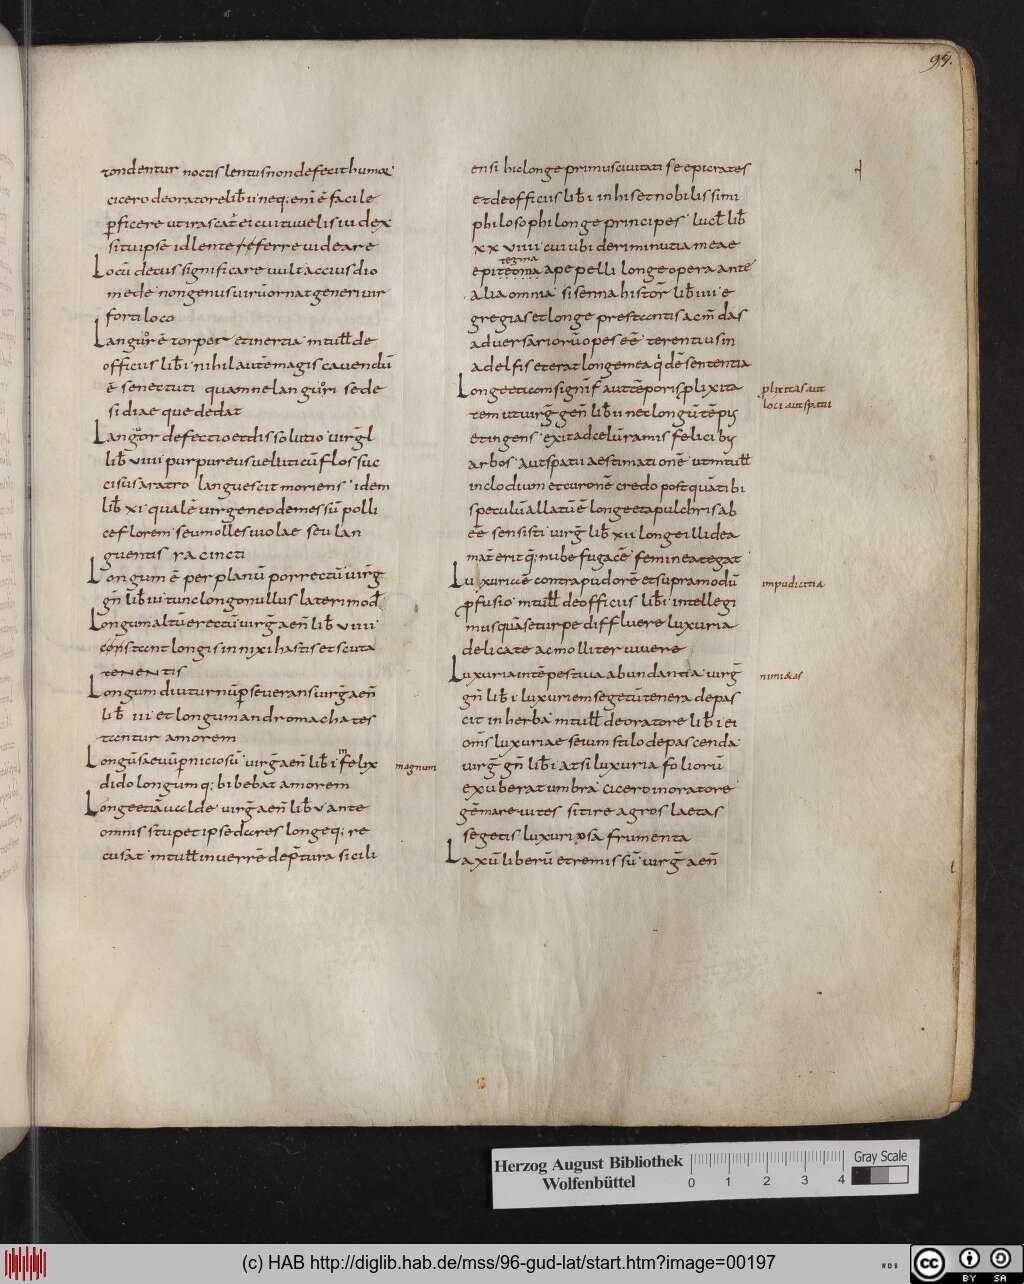 94.
tondentur noctis lentus non defecit humor
cicero de oratore lib̄ ii neq; enī ē facile
ꝑficere ut irascat̄ ei cui tu uelis iudex
si tu ipse id lente ferre uideare
Locū decus significare uult accius dio
mede non genus uirū ornat generi uir
forti loco
Languor ē torpor et inertia m tull̄ de
officiis lib̄ i nihil autē magis cauendū
ē senectuti quam ne languori se de
sidiae que dedat
Languor defectio et dissolutio uirḡl
lib̄ viiii purpureus ueluti cū flos suc
cisus aratro languescit moriens idem
lib̄ xi qualē uirgeneo demessū polli
ce florem seu molles uiolae seu lan
guentis iacincti
Longum ē per planū porrectū uirḡ
gn̄ lib̄ iii tunc longo nullus lateri mod
Longum altū erectū uirḡ aen̄ lib̄ viiii
constant longis in nixi hastis et scuta
tenentis
Longum diuturnū ꝑseuerans uirḡ aen̄
lib̄ iii et longum andromacha tes
tantur amorem
Longū saeuū ꝑniciosū uirḡ aen̄ lib̄ i felix
m
magnum
dido longum q; bibebat amorem
Longe etiā ualde uirḡ aen̄ lib̄ v ante
omnis stupet ipse dares longeq; re
cusat m tull̄ in uerrē de p̄tura sicili
ensi hic longe primus ciuitati se epicrates
et de officiis lib̄ i in his et nobilissimi
philosophi longe principes lucl̄ lib̄
xxviiii cui ubi deriminutia meae
tegma
epiteoma apepelli longe opera ante
alia omnia sisenna histor̄ lib̄ iiii e
gregias et longe prestantis acm̄ das
aduersariorū opes eē terentius in
adelfis et erat longe mea q dē sententia
Longe etiam signif̄ aut tēporis ꝓlixita
ꝓlixitas aut
loci aut spatii
tem ut uirḡ gen̄ lib̄ ii nec longū tēpus
et ingens exit ad celū ramis felicibus
arbos aut spatii aestimationē ut m tull̄
in clodium et curonē credo postquā tibi
speculū allatū ē longe eta pulchris ab
eē sensisti uirḡ lib̄ xii longe illi dea
mat̄ erit q; nube fugacē feminea tegat
Luxuriē contra pudorē et supra modū
impudicitia
ꝓfusio m tull̄ de officiis lib̄ i intellegi
mus quā se turpe diffluere luxuria
delicate ac molliter uiuere
Luxuria intēpestiua abundantia uirḡ
nimietas
gn̄ lib̄ i luxuriem segetū tenera depas
cit in herba m tull̄ de oratore lib̄ i ei
oms̄ luxuriae seium stilo depascenda
uirḡ gn̄ lib̄ i at si luxuria foliorū
exuberat umbra cicero in oratore
gēmare uites sitire agros laetas
segetis luxuriosā frumenta
Laxū liberū et remissū uirḡ aen̄
Herzog August Bibliothek
Wolfenbüttel
0 1 2 3 4
Gray Scale
(c) HAB http://diglib.hab.de/mss/96-gud-lat/start.htm?image=00197
WDB
cc BY SA